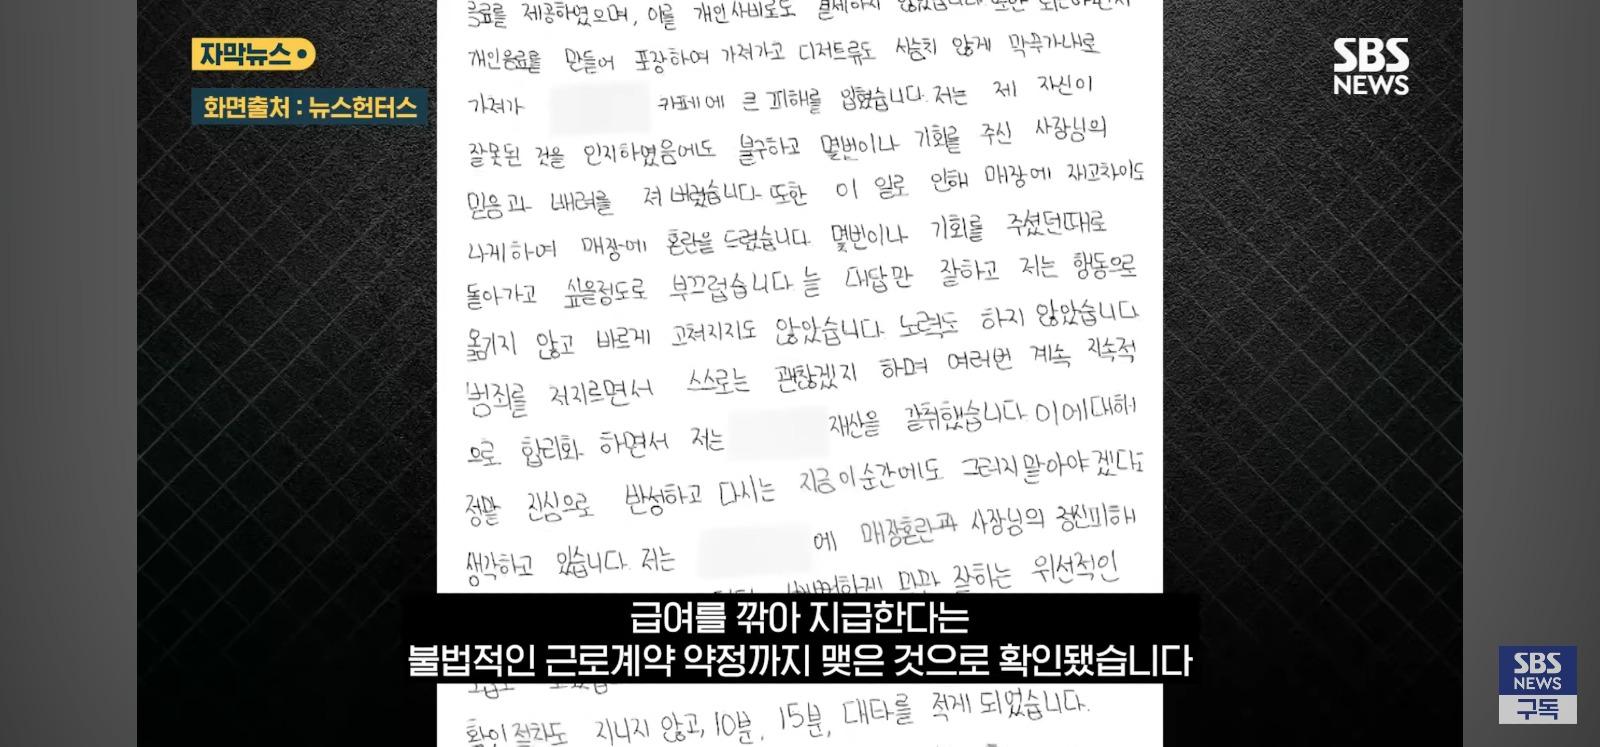 음료를 제공하였으며, 이를 개인사비로도 결제하지 않았습니다. 또한
자막뉴스
SBS NEWS
개인음료를 만들어 포장하여 가져가고 디저트류도 서슴치 않게 막무가내로
화면출처 : 뉴스헌터스
가져가 카페에 큰 피해를 입혔습니다. 저는 제 자신이
잘못된 것을 인지하였음에도 불구하고 몇번이나 기회를 주신 사장님의
믿음과 배려를 져 버렸습니다. 또한 이 일로 인해 매장에 재고차이도
나게하여 매장에 혼란을 드렸습니다. 몇번이나 기회를 주셨던때로
돌아가고 싶을정도로 부끄럽습니다. 늘 대답만 잘하고 저는 행동으로
옮기지 않고 바르게 고쳐지지도 않았습니다. 노력도 하지 않았습니다
범죄를 저지르면서 스스로는 괜찮겠지 하며 여러번 계속 지속적
으로 합리화 하면서 저는 재산을 갈취했습니다. 이에대해
정말 진심으로 반성하고 다시는 지금이순간에도 그러지말아야겠다고
생각하고 있습니다. 저는 에 매장혼란과 사장님의 정신피해
잘하는 위선적인
급여를 깎아 지급한다는
불법적인 근로계약 약정까지 맺은 것으로 확인됐습니다
SBS NEWS
구독
확인절차도 지니지 않고, 10분, 15분, 대타를 적게 되었습니다.